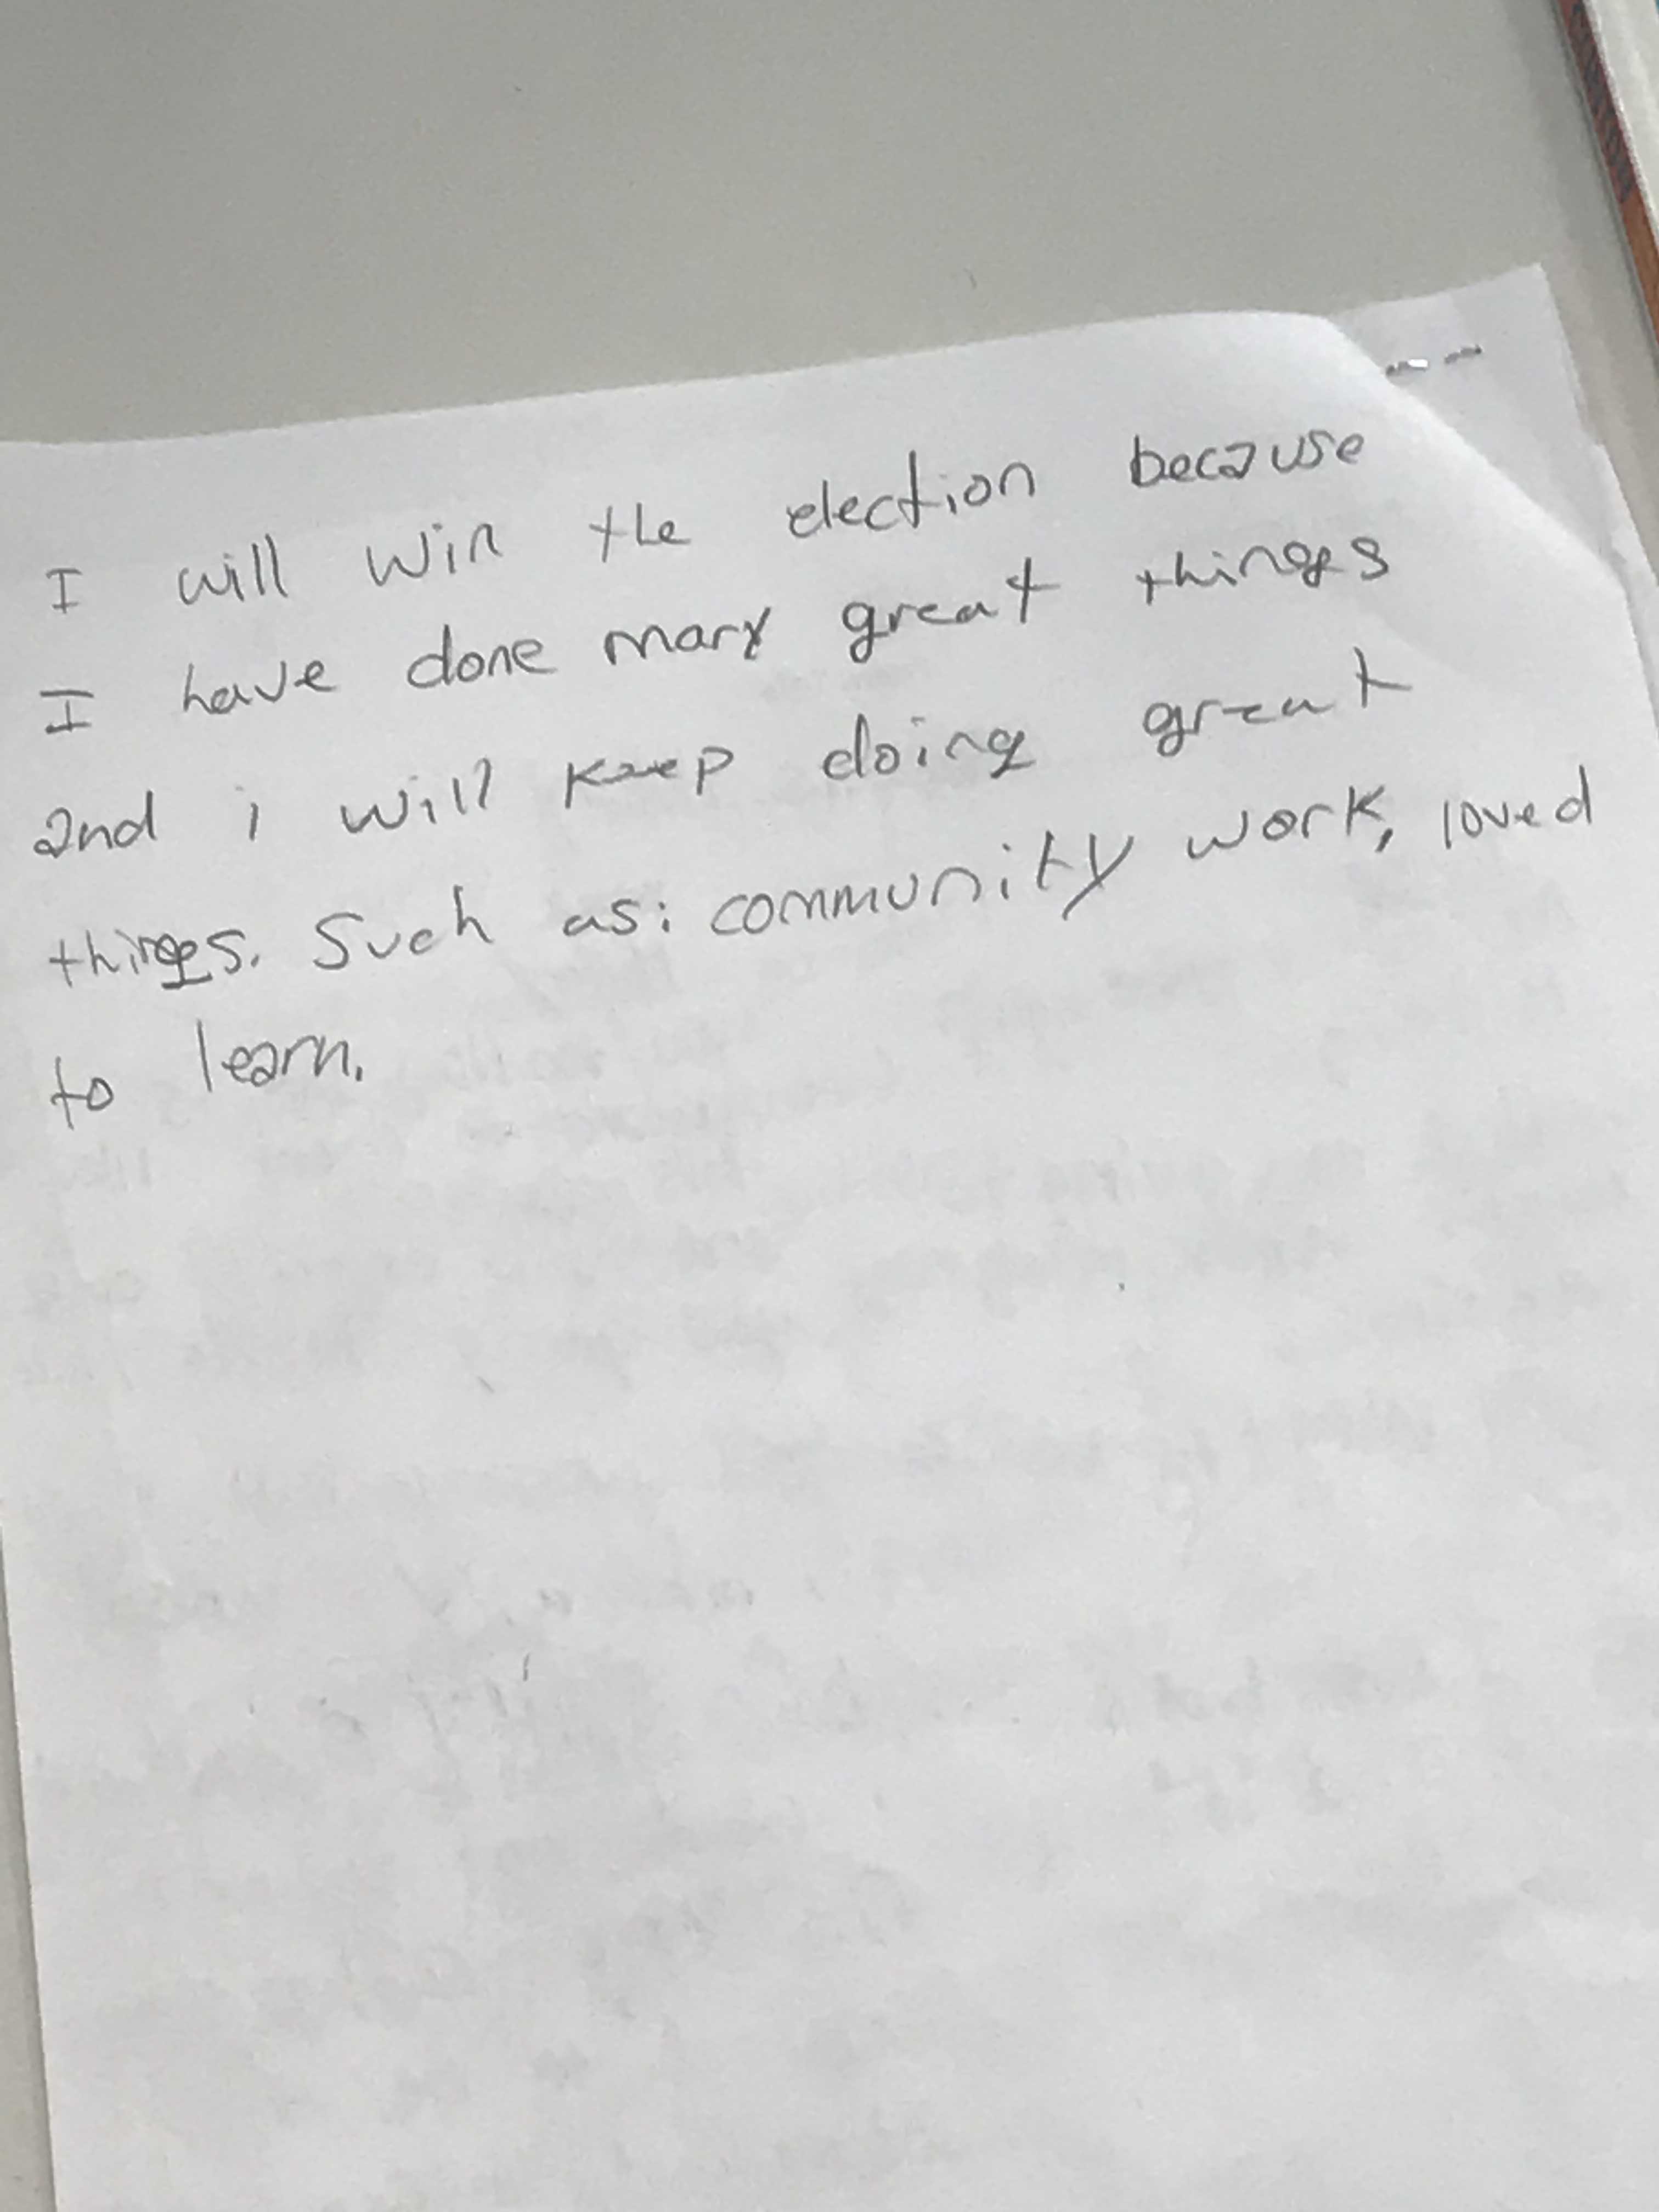 I will win the election because
I have done many great things
and i will keep doing great
things. Such as: community work, loved
to learn.